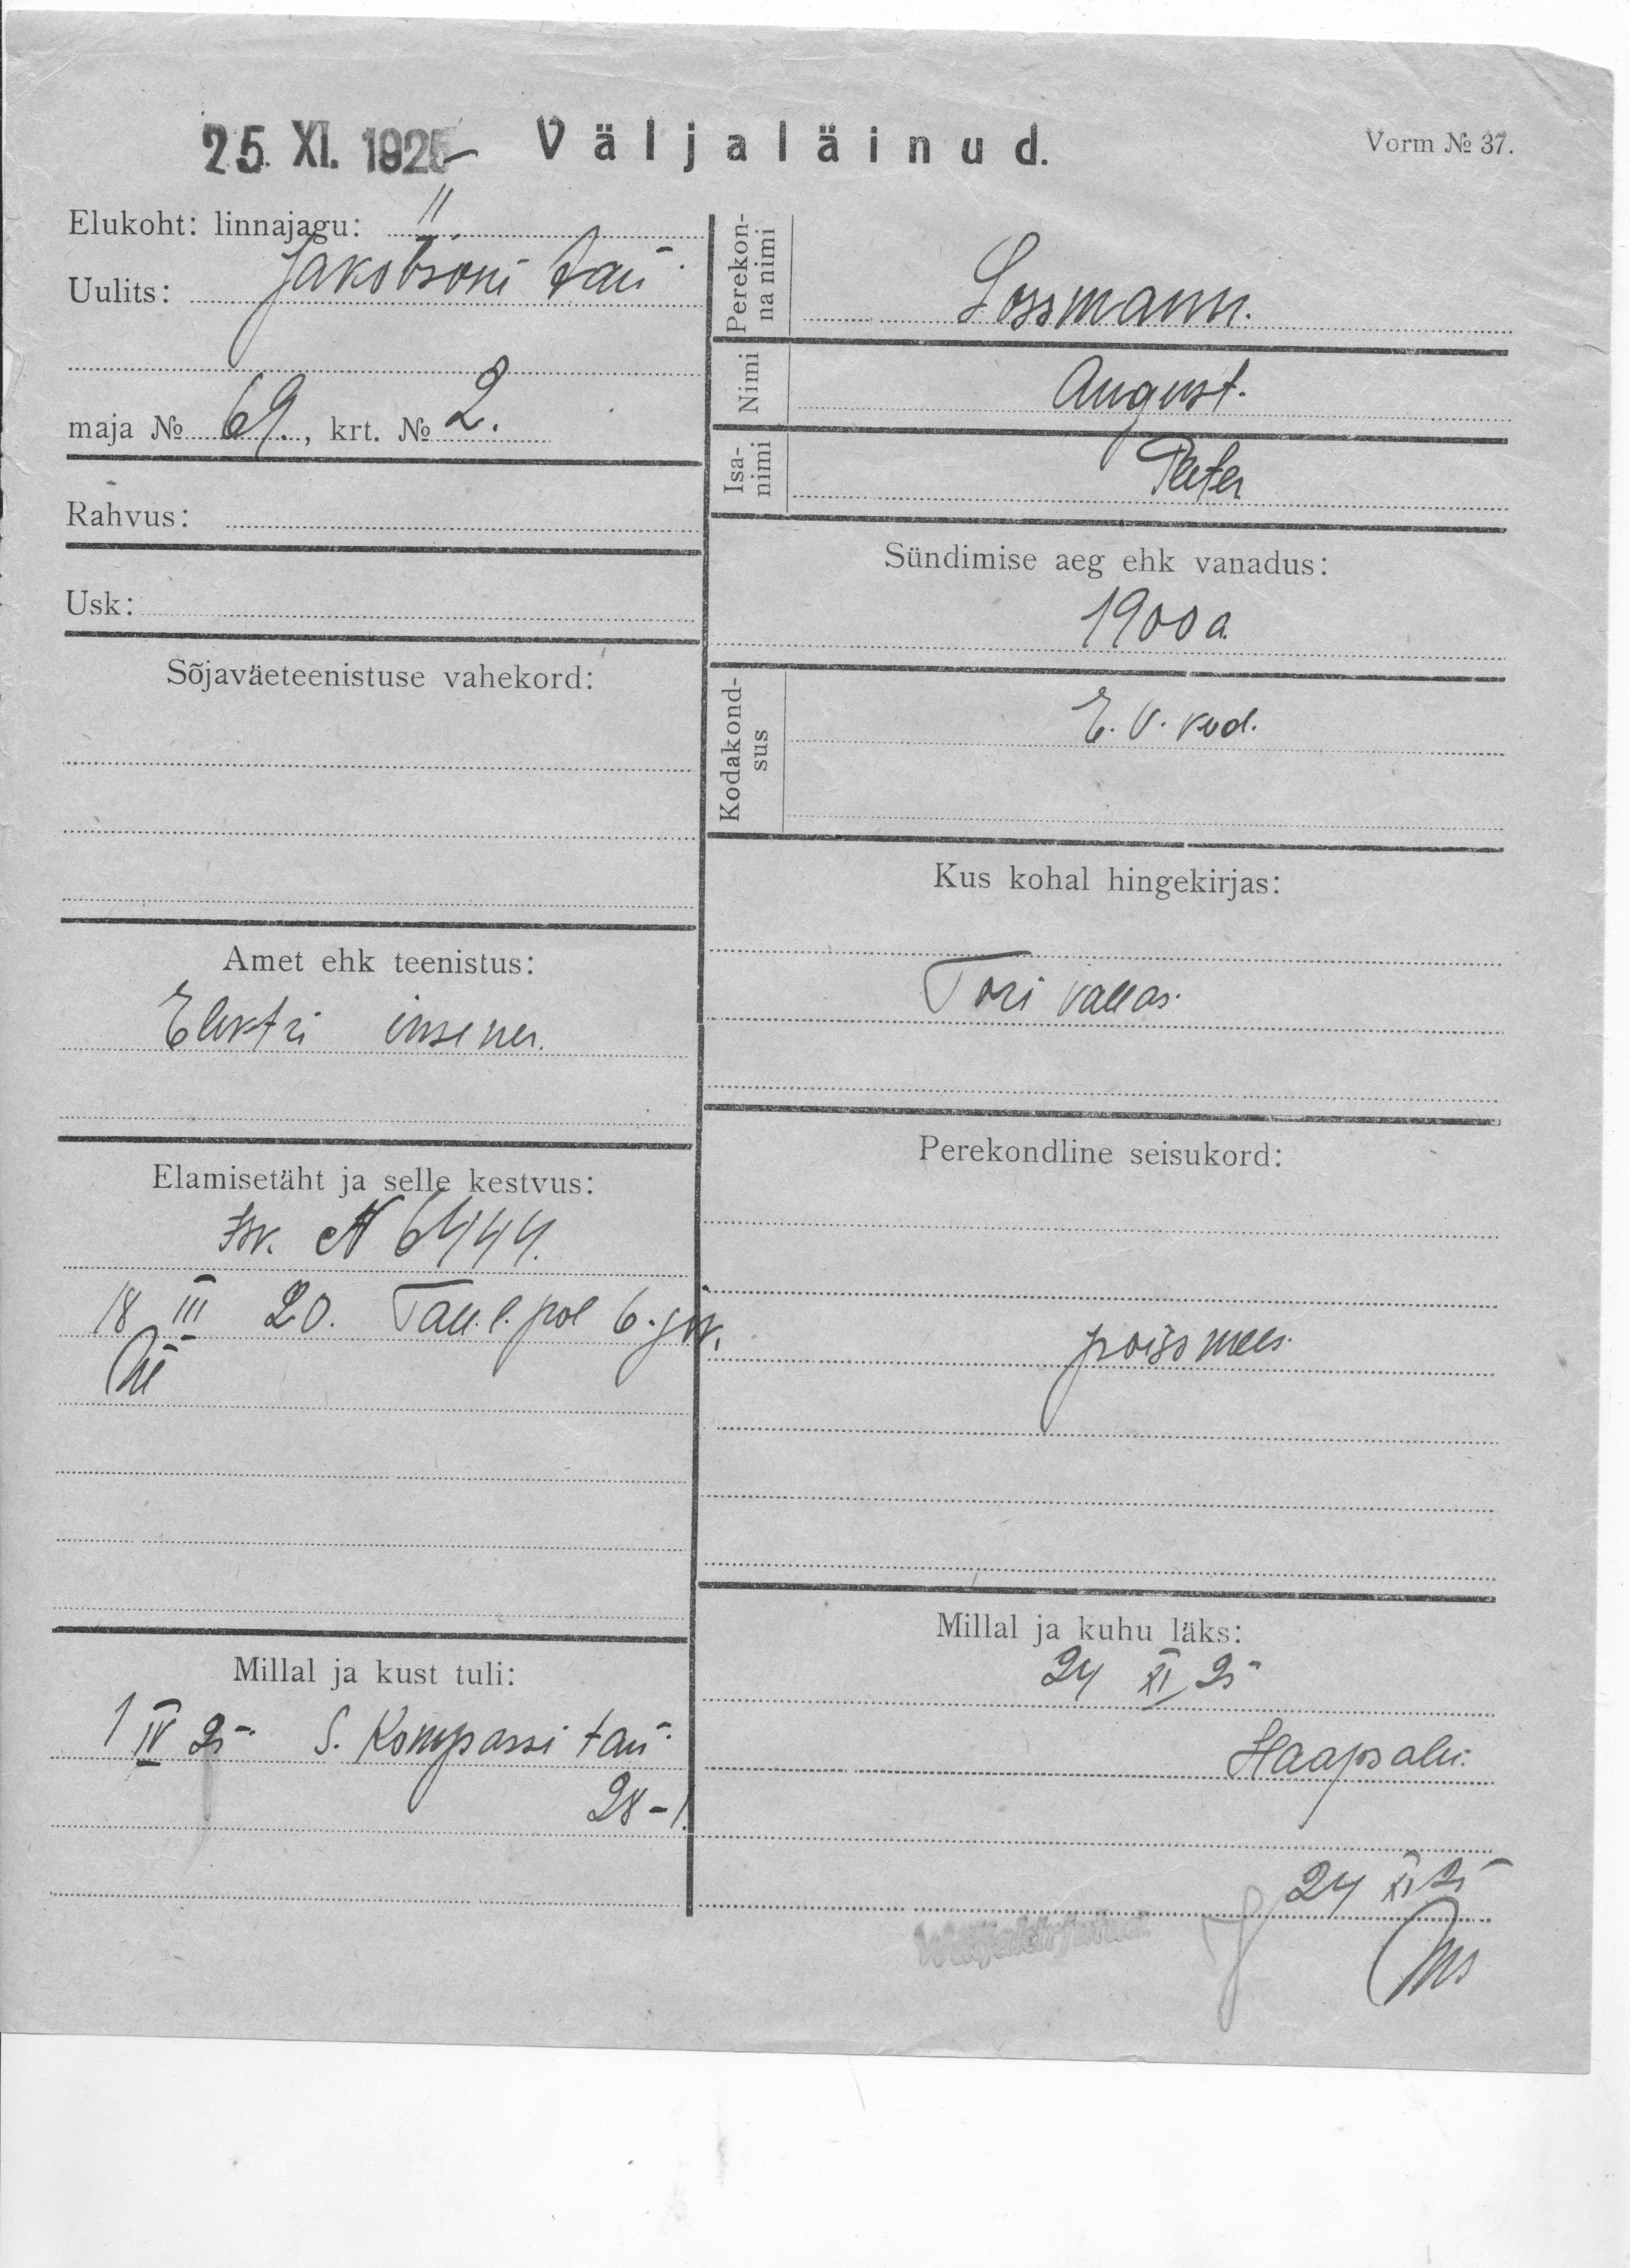 25. XI. 1925 Väljaläinud.
Vorm № 37.
Elukoht: linnajagu: II.
Uulits: Jakobsoni tän.
maja № 69., krt. № 2.
Rahvus:
Usk:
Sõjaväeteenistuse vahekord:
Amet ehk teenistus:
Elektri insener.
Elamisetäht ja selle kestvus:
Isv. N 6444.
18 III 20. Tall. l. pol 6. jsk.
Millal ja kust tuli:
1 IV 25 S. Kompassi tän.
28-1.
Perekonna nimi
Lossmann.
Nimi
August.
Isanimi
Peeter
Sündimise aeg ehk vanadus:
1900 a.
Kodakondsus
E. V. kod.
Kus kohal hingekirjas:
Tori vallas.
Perekondline seisukord:
poissmees.
Millal ja kuhu läks:
24 XI 25
Haapsalu.
24 XI 25
Väljakirjutud